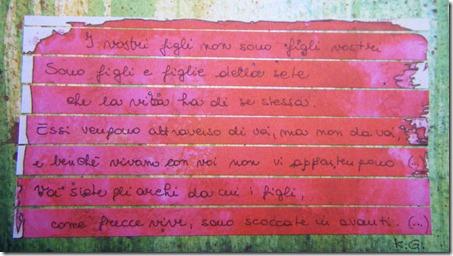 I vostri figli non sono figli vostri
Sono figli e figlie della sete
che la vita ha di se stessa.
Essi vengono attraverso di voi, ma non da voi,
e benchè vivano con voi non vi appartengono (...)
Voi siete gli archi da cui i figli,
come frecce vive, sono scoccate in avanti. (...)
K.G.